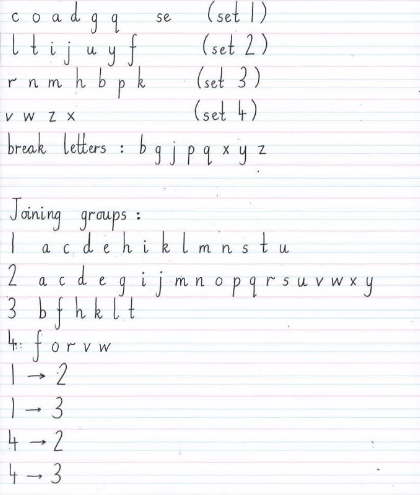 c o a d g q se (set 1)
l t i j u y f (set 2)
r n m h b p k (set 3)
v w z x (set 4)
break letters : b g j p q x y z
Joining groups :
1 a c d e h i k l m n s t u
2 a c d e g i j m n o p q r s u v w x y
3 b f h k l t
4: f o r v w
1 → 2
1 → 3
4 → 2
4 → 3